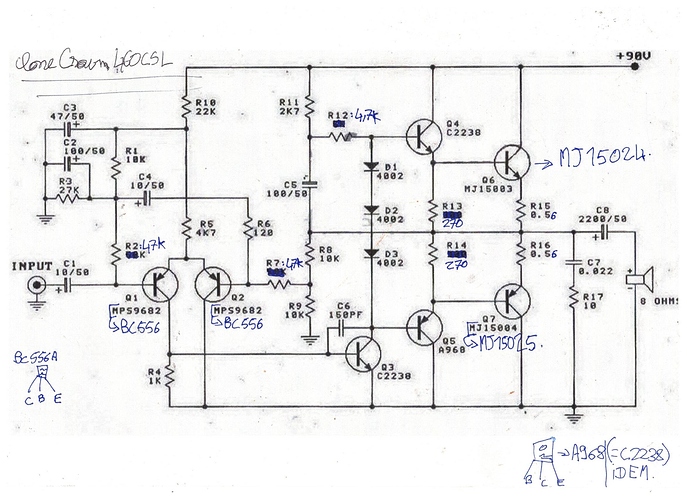 Clone Crown 460CSL
+90V
C3
47/50
R10
22K
R11
2K7
R12: 4,7K
Q4
C2238
C2
100/50
R1
10K
D1
4002
→ MJ15024.
Q6
MJ15003
R3
27K
C4
10/50
C5
100/50
D2
4002
R13
270
R15
0.56
C8
2200/50
R5
4K7
R6
120
R2: 47K
R7: 47K
R8
10K
D3
4002
R14
270
R16
0.56
C7
0.022
INPUT
C1
10/50
Q1
MPS9682
→BC556
Q2
MPS9682
→BC556
R9
10K
C6
150PF
Q5
A968
Q7
MJ15004
→MJ15025.
R17
10
8 OHMS
BC556A
C B E
R4
1K
Q3
C2238
→A968 (=C2238)
IDEM.
B C E